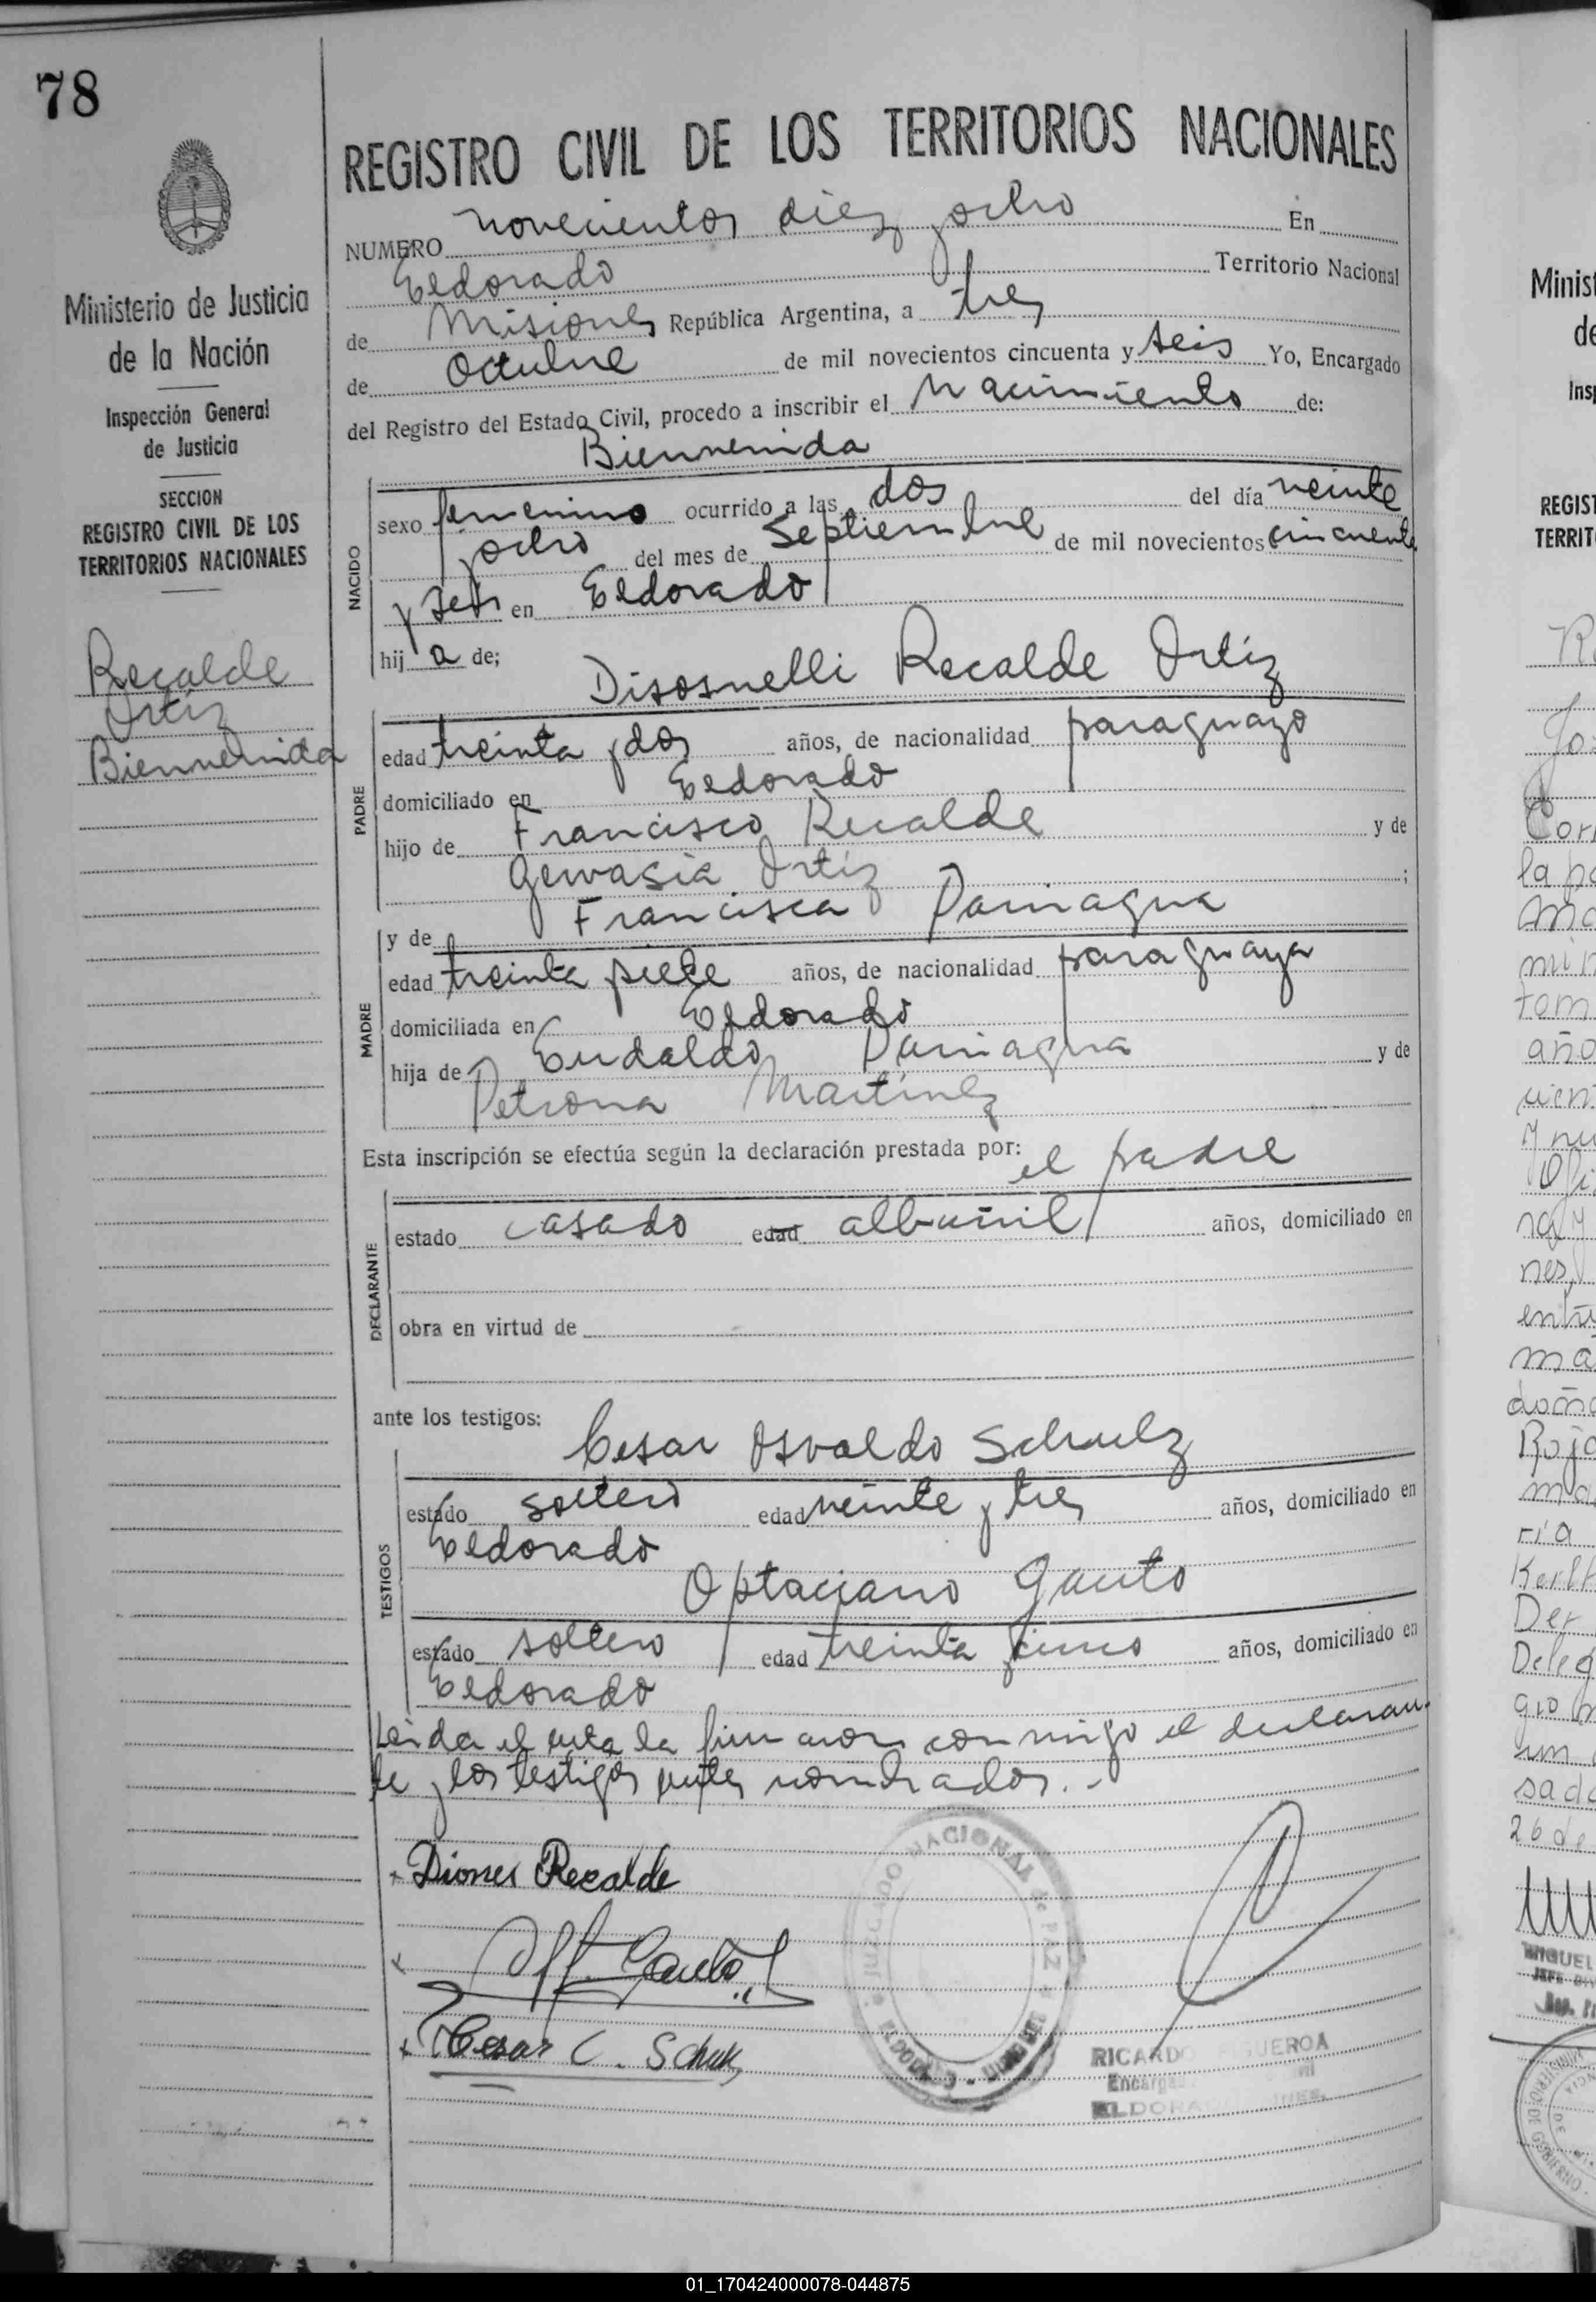 78
Ministerio de Justicia
de la Nación
Inspección General
de Justicia
SECCION
REGISTRO CIVIL DE LOS
TERRITORIOS NACIONALES
Recalde
Ortíz
Bienvenida
REGISTRO CIVIL DE LOS TERRITORIOS NACIONALES
NUMERO novecientos diez y ocho En
Eldorado Territorio Nacional
de Misiones República Argentina, a tres
de Octubre de mil novecientos cincuenta y seis Yo, Encargado
del Registro del Estado Civil, procedo a inscribir el Nacimiento de:
Bienvenida
NACIDO
sexo femenino ocurrido a las dos del día veinte
y ocho del mes de Septiembre de mil novecientos cincuenta
y seis en Eldorado
hij a de;
Disosnelli Recalde Ortíz
PADRE
edad treinta y dos años, de nacionalidad paraguayo
domiciliado en Eldorado
hijo de Francisco Recalde y de
Gervasia Ortíz ;
y de Francisca Paniagua
MADRE
edad treinta y siete años, de nacionalidad paraguaya
domiciliada en Eldorado
hija de Eudaldo Paniagua y de
Petrona Martínez
Esta inscripción se efectúa según la declaración prestada por: el padre
DECLARANTE
estado casado edad albañil años, domiciliado en
obra en virtud de
ante los testigos:
Cesar Osvaldo Schulz
TESTIGOS
estado soltero edad veinte y tres años, domiciliado en
Eldorado
Optaciano Gauto
estado soltero edad treinta y cinco años, domiciliado en
Eldorado
Leida el acta la firmaron conmigo el declaran
te y los testigos antes nombrados.-
Diones Recalde
Gauto
Cesar C. Schulz
JUZGADO NACIONAL de PAZ
ELDORADO - MISIONES
RICARDO FIGUEROA
ELDORADO
01_170424000078-044875